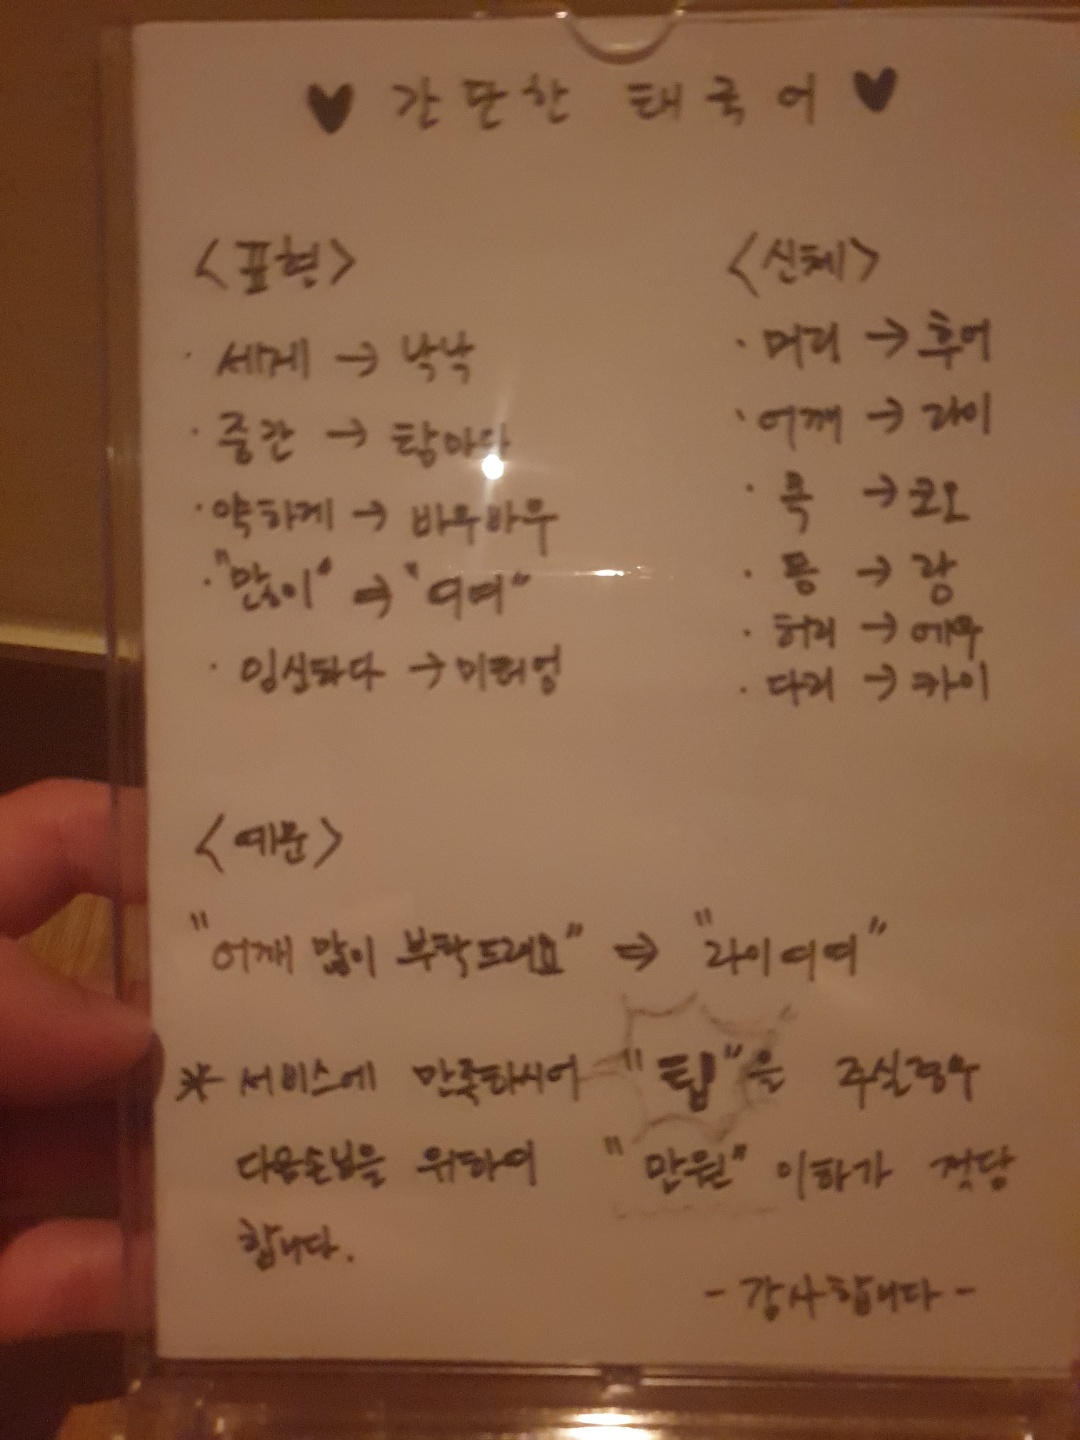 ♥ 간단한 태국어 ♥
<표현>
· 세게 → 낙낙
· 중간 → 탐마다
· 약하게 → 바우바우
· "많이" → "여여"
· 임신하다 → 미터엉
<신체>
· 머리 → 후어
· 어깨 → 라이
· 목 → 코오
· 등 → 랑
· 허리 → 에우
· 다리 → 카이
<예문>
"어깨 많이 부탁드려요" → "라이 여여"
* 서비스에 만족하시어 "팁"을 주실경우
다음손님을 위하여 "만원" 이하가 적당
합니다.
- 감사합니다 -